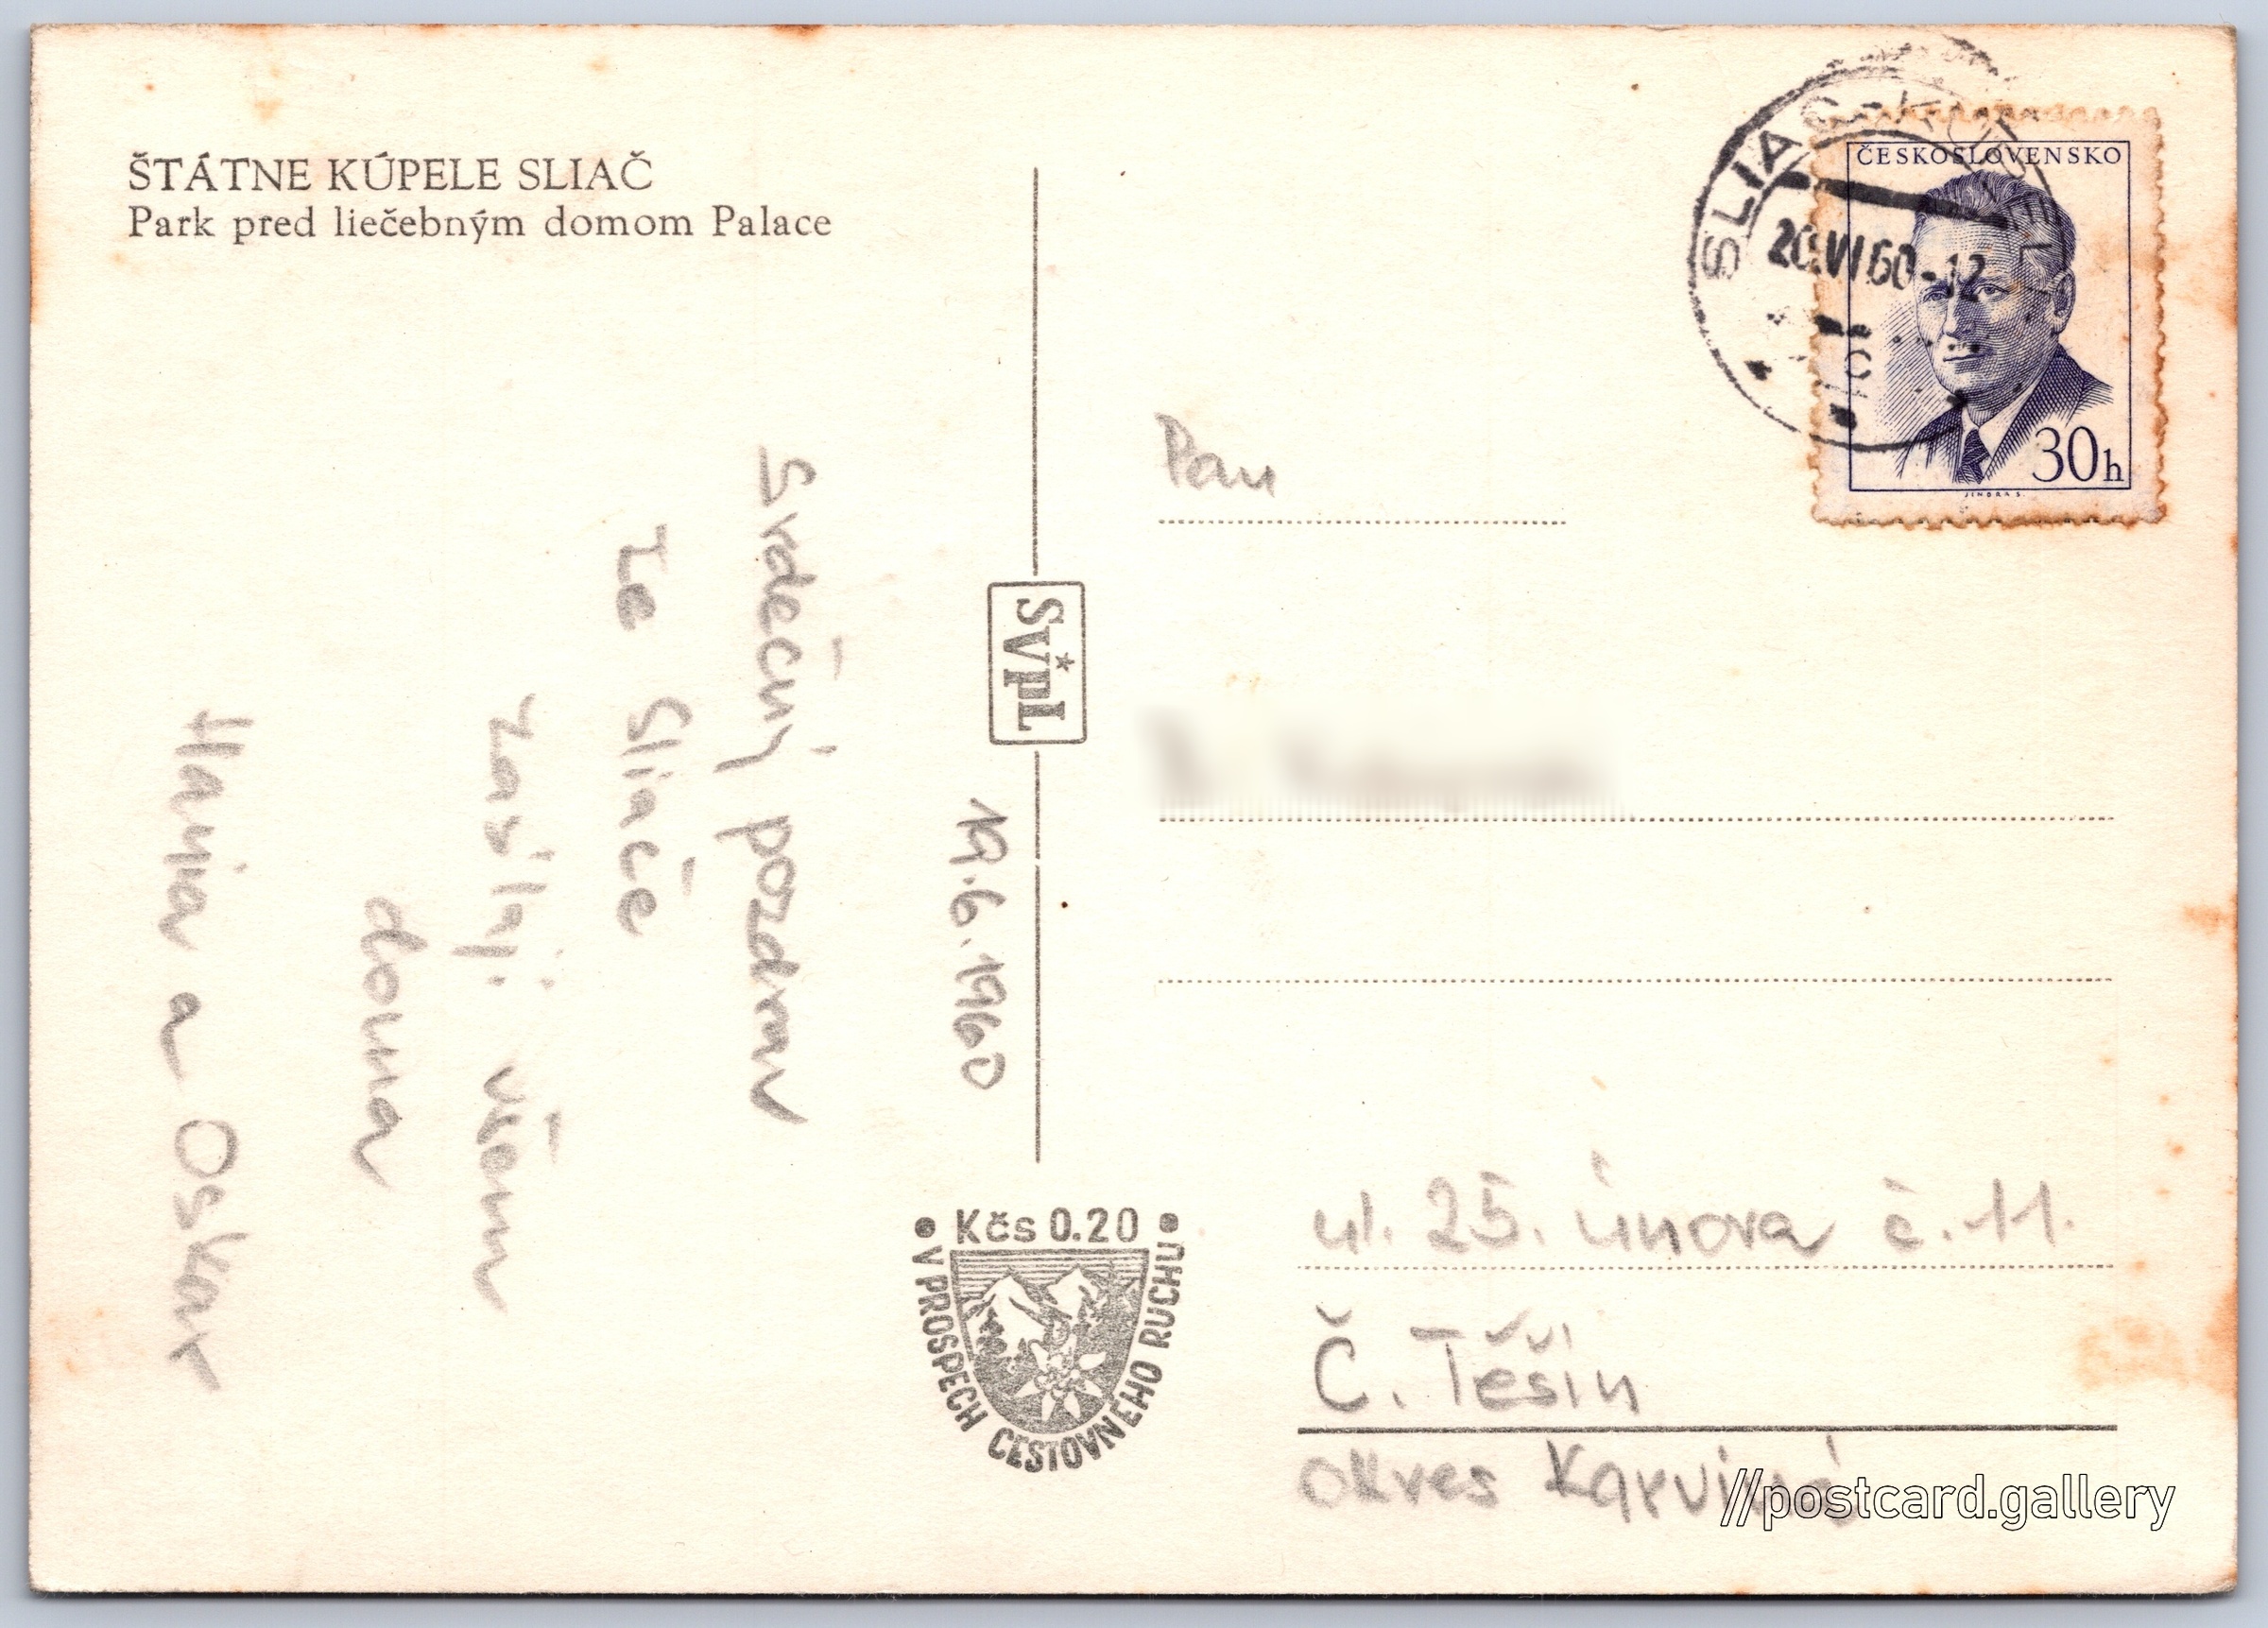 ŠTÁTNE KÚPELE SLIAČ
Park pred liečebným domom Palace
19.6.1960
Srdečný pozdrav
ze Sliače
zasílají všem
doma
Hania a Oskar
SVPL
Kčs 0.20
V PROSPECH CESTOVNÉHO RUCHU
SLIAČ-KÚPELE
20.VI.60-12
C
ČESKOSLOVENSKO
30h
JINDRA S.
Pan
ul. 25. února č. 11.
Č. Těšín
okres Karviná
//postcard.gallery